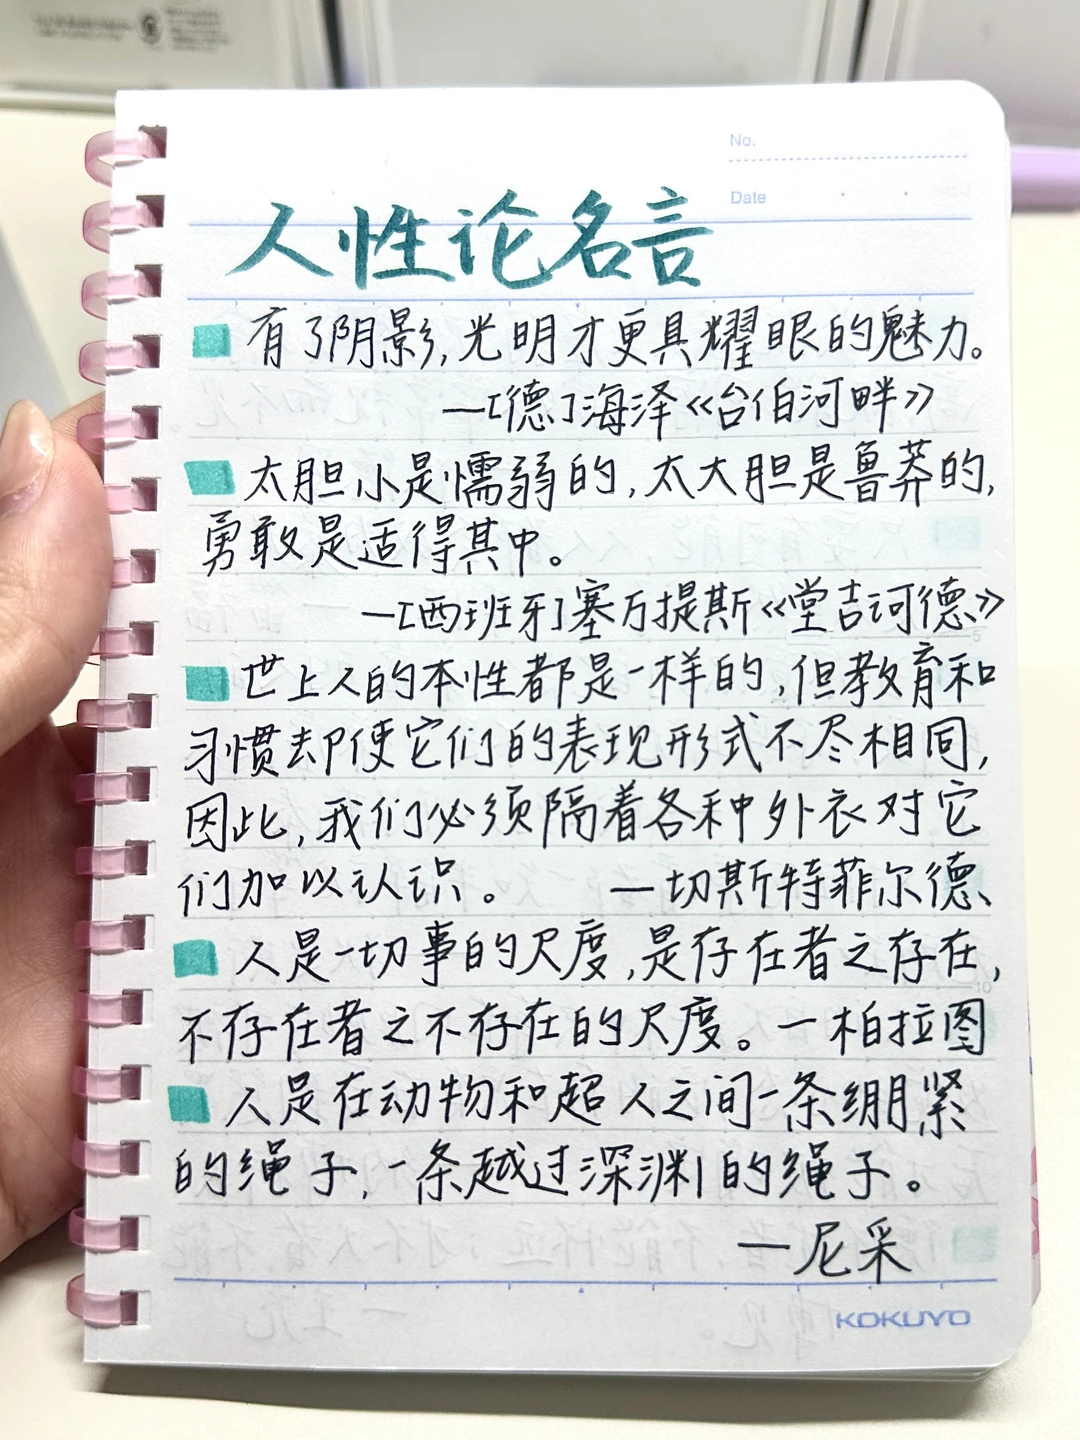 No.
Date
人性论名言
有了阴影,光明才更具耀眼的魅力。
—[德]海泽《台伯河畔》
太胆小是懦弱的,太大胆是鲁莽的,
勇敢是适得其中。
—[西班牙]塞万提斯《堂吉诃德》
世上人的本性都是一样的,但教育和
习惯却使它们的表现形式不尽相同,
因此,我们必须隔着各种外衣对它
们加以认识。 —切斯特菲尔德
人是一切事的尺度,是存在者之存在,
不存在者之不存在的尺度。—柏拉图
人是在动物和超人之间一条绷紧
的绳子,一条越过深渊的绳子。
—尼采
KOKUYO